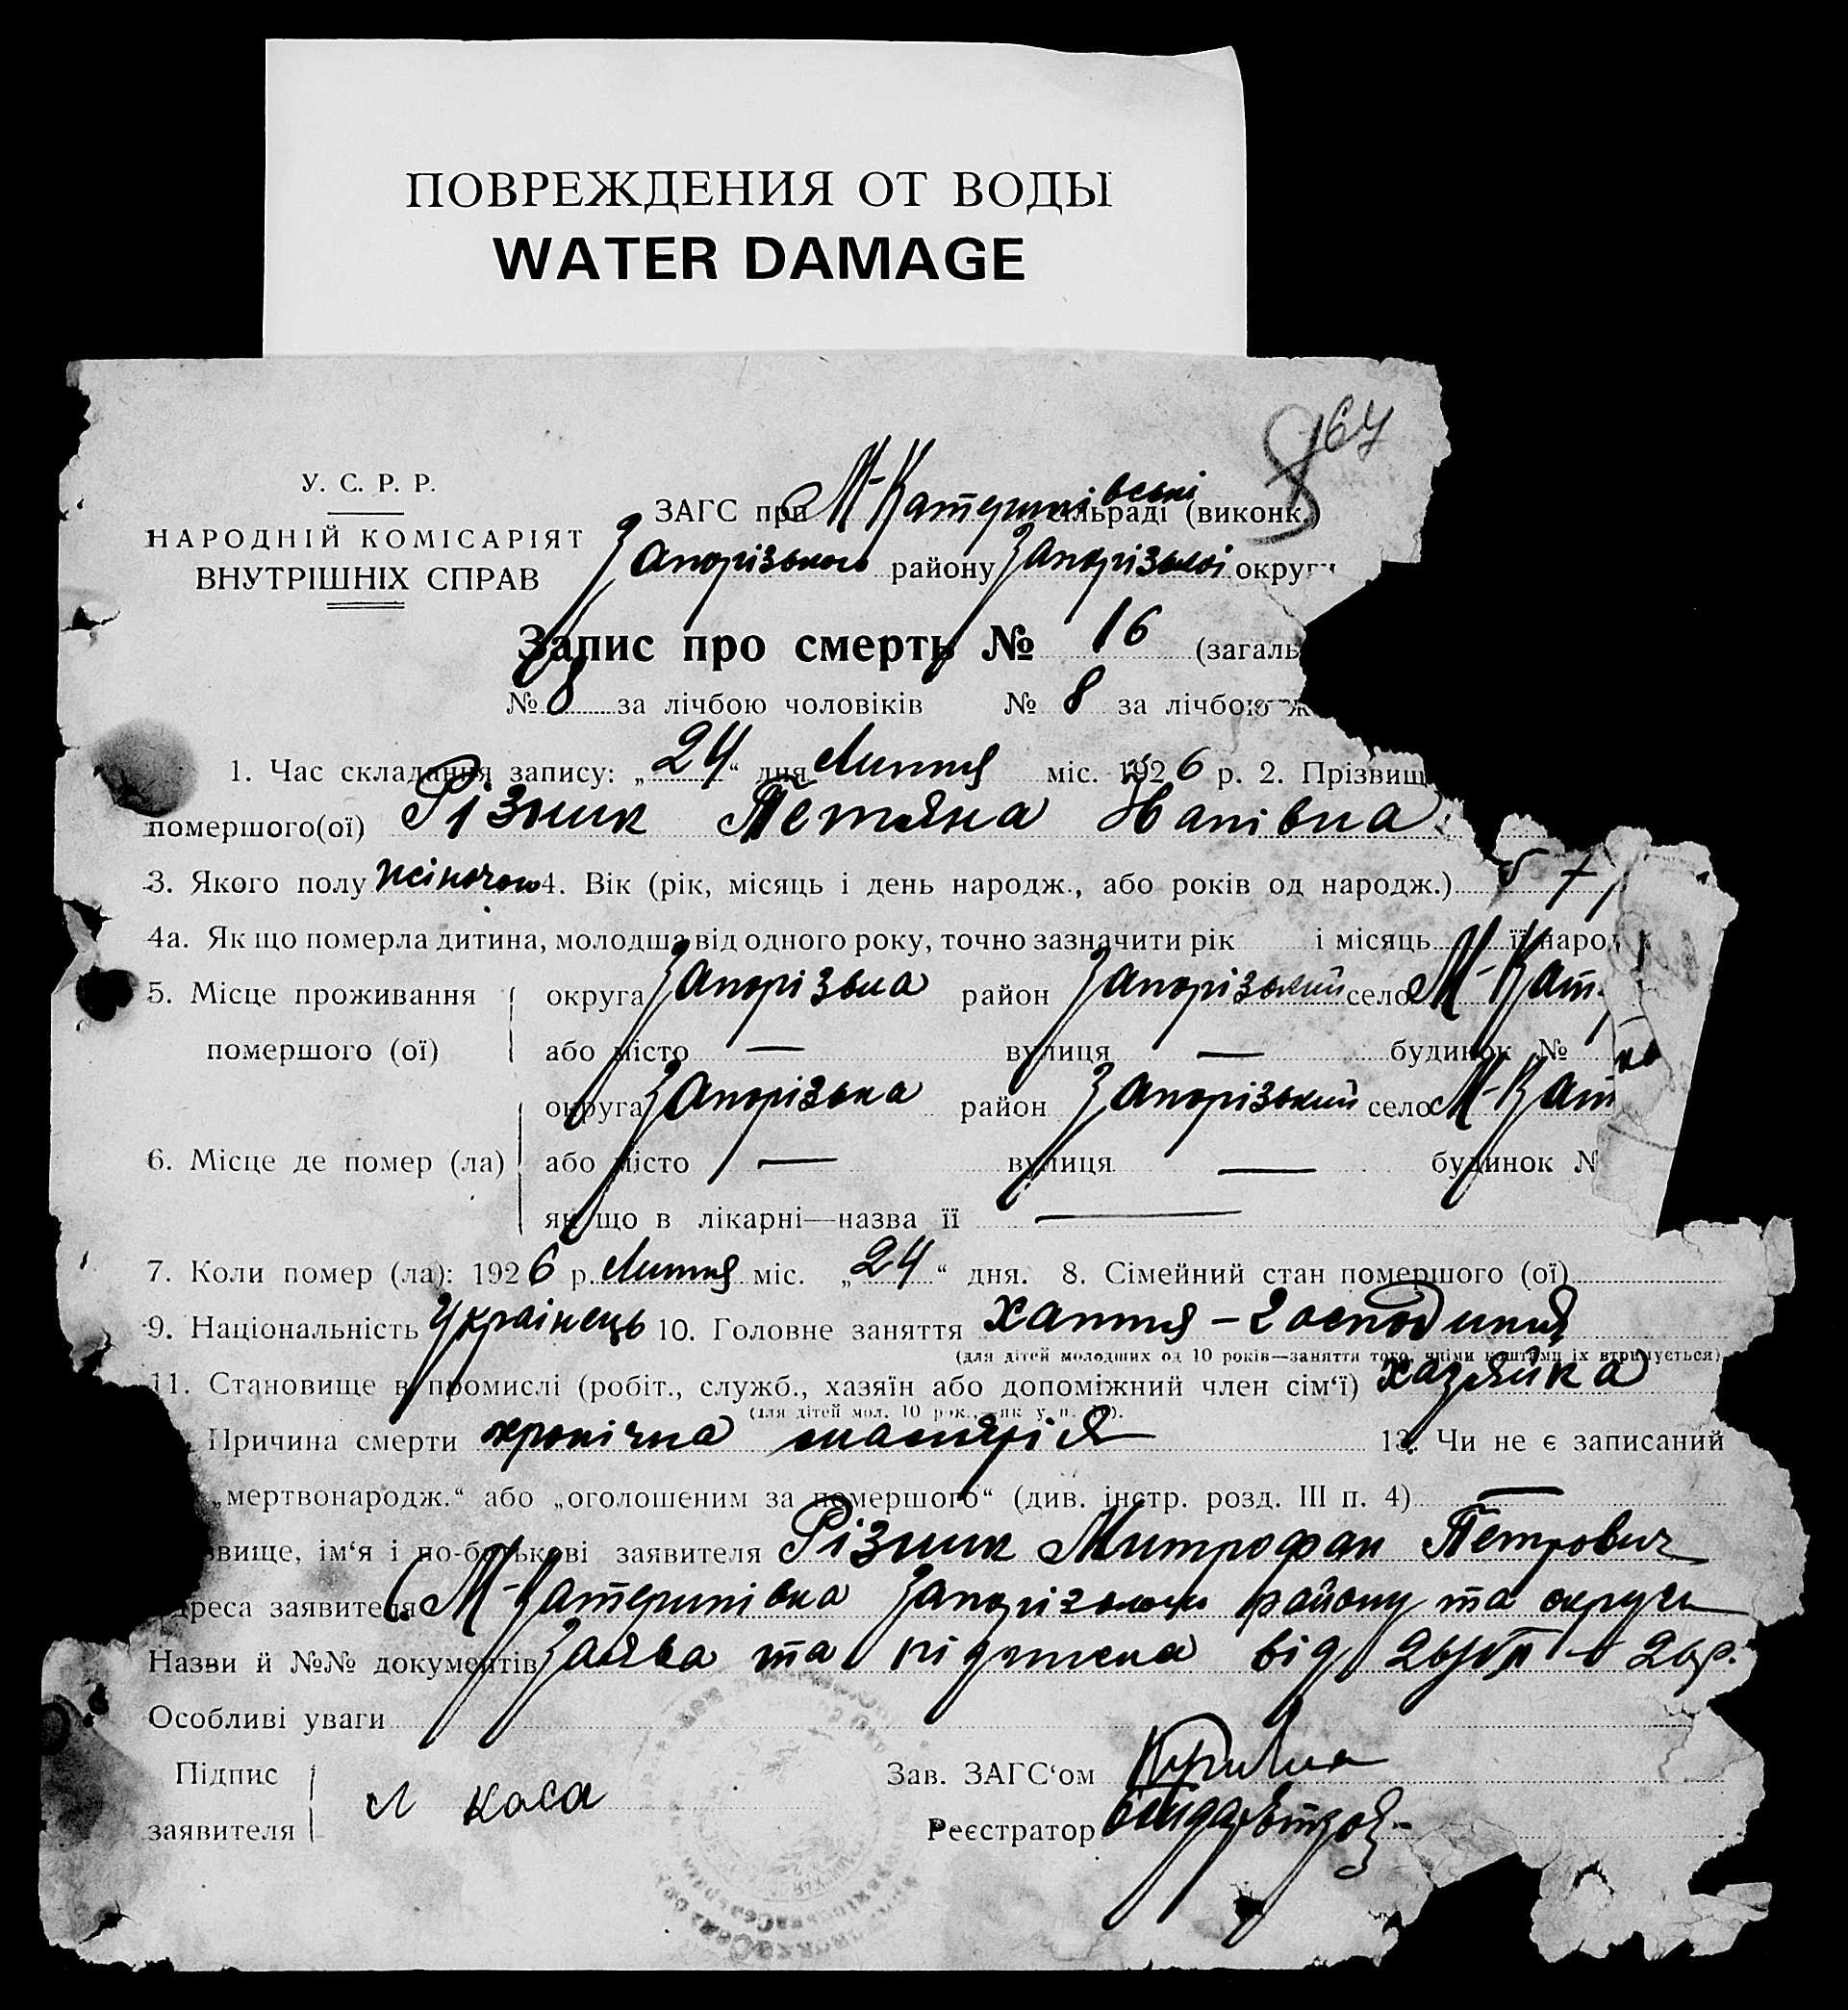 ПОВРЕЖДЕНИЯ ОТ ВОДЫ
WATER DAMAGE
64
8
У. С. Р. Р.
НАРОДНІЙ КОМІСАРІЯТ
ВНУТРІШНІХ СПРАВ
ЗАГС при М-Катеринівські сільраді (виконк.)
Запорізького району Запорізької округи
Запис про смерть № 16 (загаль
№ 8 за лічбою чоловіків № 8 за лічбою ж
1. Час складання запису: „24“ дня Липня міс. 1926 р. 2. Прізвищ
помершого(ої) Різник Тетяна Іванівна
3. Якого полу жіночого 4. Вік (рік, місяць і день народж., або років од народж.) 57
4а. Як що померла дитина, молодша від одного року, точно зазначити рік і місяць її народ
5. Місце проживання помершого (ої) округа Запорізька район Запорізький село М-Кат
або місто — вулиця — будинок №
6. Місце де помер (ла) округа Запорізька район Запорізький село М-Кат
або місто — вулиця — будинок №
як що в лікарні—назва її —
7. Коли помер (ла): 1926 р. Липня міс. „24“ дня. 8. Сімейний стан помершого (ої)
9. Національність Українець 10. Головне заняття хатня - господиня
(для дітей молодших од 10 років—заняття того, чиїми коштами їх втримується)
11. Становище в промислі (робіт., служб., хазяїн або допоміжний член сім‘ї) хазяйка
(для дітей мол. 10 рок., як у п. 10).
Причина смерти хронічна малярія 13. Чи не є записаний
„мертвонародж.“ або „оголошеним за помершого“ (див. інстр. розд. III п. 4) —
звище, ім‘я і по-батькові заявителя Різник Митрофан Петрович
дреса заявителя С. М-Катеринівка Запорізького району та округи
Назви й №№ документів Заява та від
Особливі уваги
Підпис заявителя
Зав. ЗАГС‘ом
Реєстратор